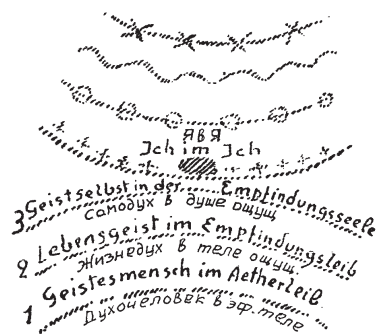 Я в Я
Ich im Ich
3 Geistselbst in der ..... Empfindungsseele
Самодух в душе ощущ
2 Lebensgeist im Empfindungsleib
Жизнедух в теле ощущ.
1 Geistesmensch im Aetherleib
Духочеловек в эф. теле